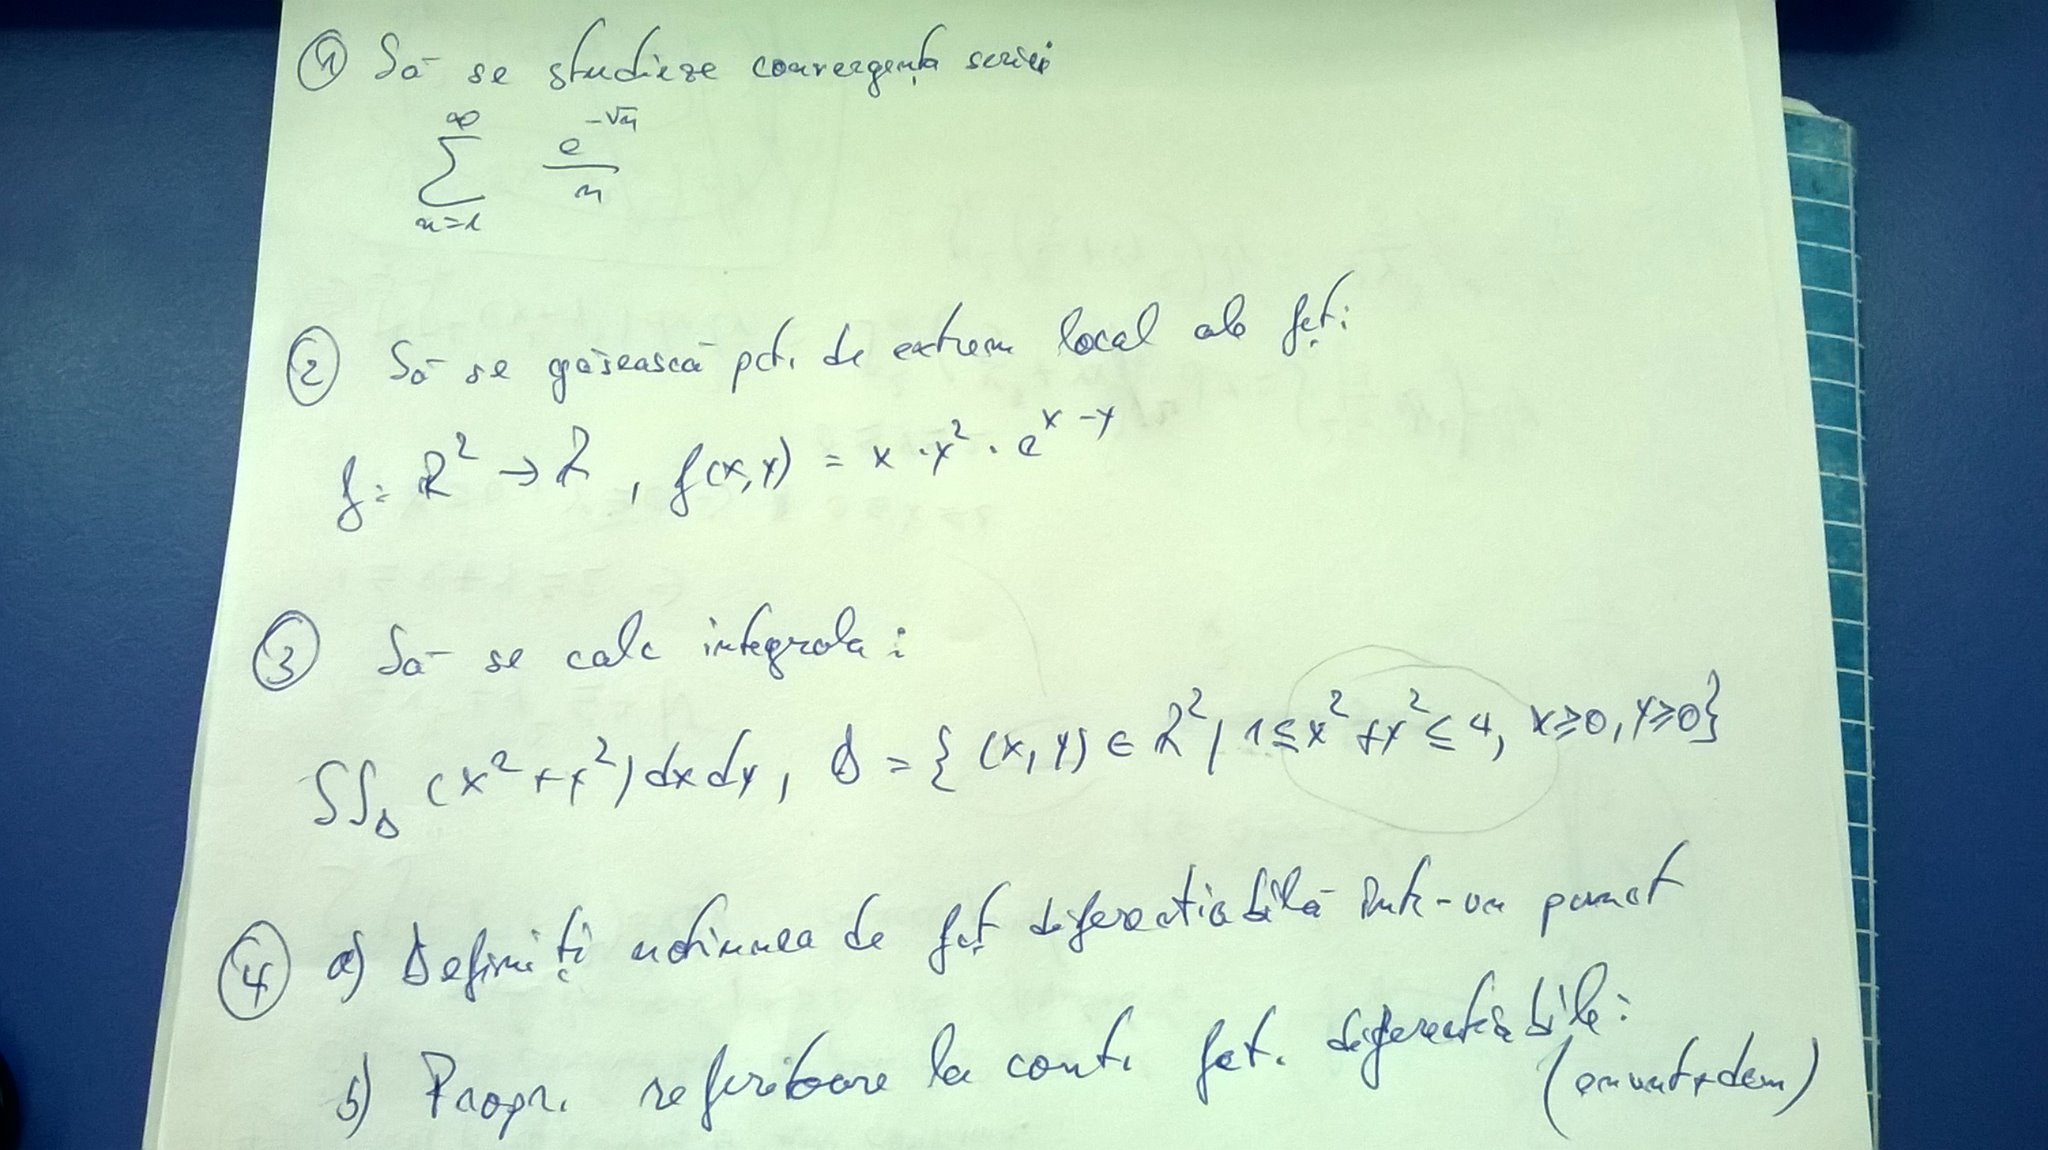 ① Să se studieze convergența seriei
∑_{n=1}^{∞} e^{-√n} / n
② Să se găsească pct. de extrem local ale fcț:
f: R² → R, f(x,y) = x·y²·e^{x-y}
③ Să se calc integrala:
∬_D (x²+y²)dxdy, D = {(x,y) ∈ R² / 1≤x²+y²≤4, x≥0, y≥0}
④ a) Definiți noțiunea de fcț diferențiabilă într-un punct
b) Propr. referitoare la cont. fcț. diferențiabile:
(enunț+dem)